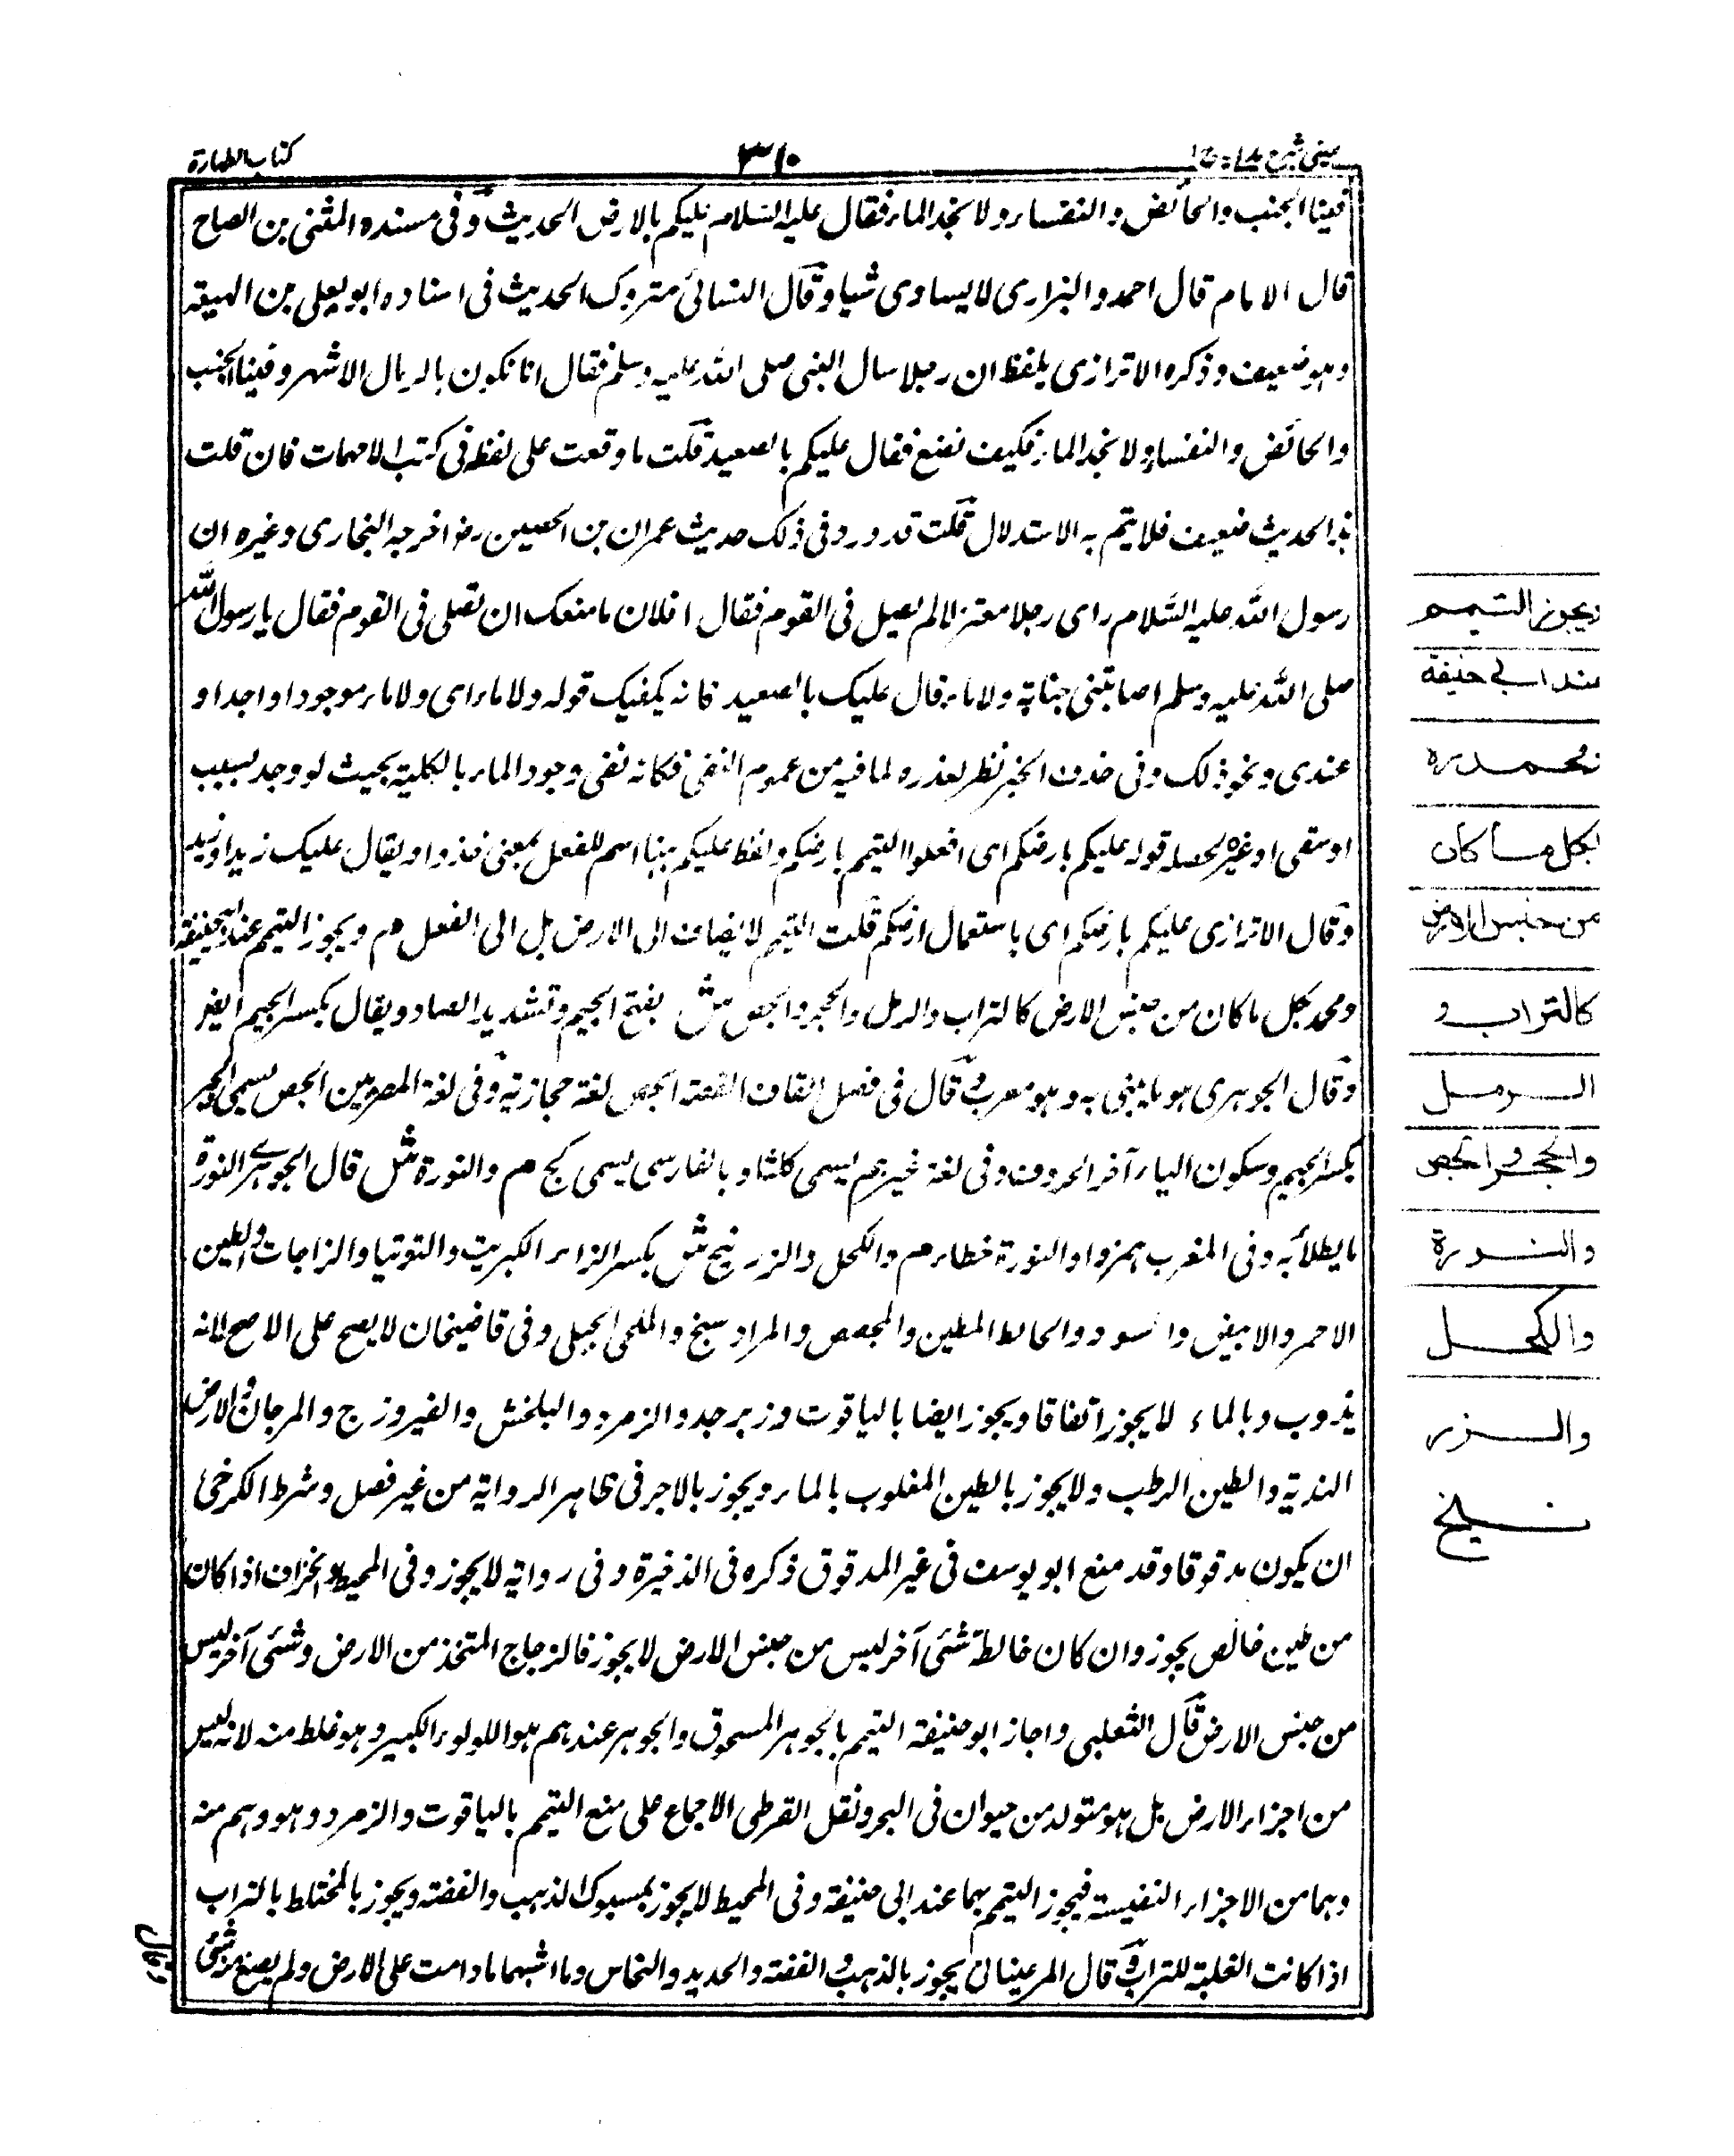 عينى شرح هدايه ج ١
٣١٠
كتاب الطهارة
فينا الجنب والحائض والنفساء ولا نجد الماء فقال عليه السلام عليكم بالارض الحديث وفى مسنده المثنى بن الصباح
قال الامام قال احمد والرازى لا يساوى شيا وقال النسائى متروك الحديث فى اسناده ابو يعلى بن الهيعة
وهو ضعيف وذكره الاترازى بلفظ ان رجلا سال النبى صلى الله عليه وسلم فقال انا نكون بالرمال الاشهر وفينا الجنب
والحائض والنفساء ولا نجد الماء فكيف نصنع فقال عليكم بالصعيد قلت ما وقعت على لفظه فى كتب الامهات فان قلت
هذا الحديث ضعيف فلا يتم به الاستدلال قلت قد ورد فى ذلك حديث عمران بن الحصين رضـ اخرجه البخارى وغيره ان
رسول الله عليه السلام راى رجلا معتزلا لم يصل فى القوم فقال افلان ما منعك ان تصلى فى القوم فقال يا رسول الله
صلى الله عليه وسلم اصابتنى جنابة ولا ماء قال عليك بالصعيد فانه يكفيك قوله ولا ماء اى ولا ماء موجود او اجد او
عندى ونحو ذلك وفى حذف الخبر نظر لعذره لما فيه من عموم النفى فكانه نفى وجود الماء بالكلية بحيث لو وجد بسبب
او سقى او غيره لحصله قوله عليكم بارضكم اى افعلوا التيمم بارضكم ولفظ عليكم هنا اسم للفعل بمعنى خذوا ويقال عليك زيدا وبزيد
وقال الاترازى عليكم بارضكم اى باستعمال ارضكم قلت التيمم لا يضاف الى الارض بل الى الفعل م ويجوز التيمم عند ابى حنيفة
ومحمد بكل ما كان من جنس الارض كالتراب والرمل والحجر والجص ش بفتح الجيم وتشديد الصاد ويقال بكسر الجيم ايضا
وقال الجوهرى هو ما يبنى به وهو معرب وقال فى فصل القاف القصة الجص لغة حجازية وفى لغة المصريين الجص يسمى الجير
بكسر الجيم وسكون الياء آخر الحروف وفى لغة غيرهم يسمى كلسا وبالفارسى يسمى كچ م والنورة ش قال الجوهرى النورة
ما يطلأ به وفى المغرب همز واو النورة خطاء م والكحل والزرنيخ ش بكسر الزاء الكبريت والتوتيا والزاجات والطين
الاحمر والابيض والاسود والحائط المطين والمجصص والمراد سبخ والملح الجبلى وفى قاضيخان لا يصح على الاصح لانه
يذوب وبالماء لا يجوز اتفاقا ويجوز ايضا بالياقوت وزبرجد والزمرد والبلخش والفيروزج والمرجان والارض
الندية والطين الرطب ولا يجوز بالطين المغلوب بالماء ويجوز بالاجر فى ظاهر الرواية من غير فصل وشرط الكرخى
ان يكون مدقوقا وقد منع ابو يوسف فى غير المدقوق ذكره فى الذخيرة وفى رواية لا يجوز وفى المحيط والخزاف اذا كان
من طين خالص يجوز وان كان خالطه شئى آخر ليس من جنس الارض لا يجوز فالزجاج المتخذ من الارض وشئى آخر ليس
من جنس الارض قال الثعلبى واجاز ابو حنيفة التيمم بالجوهر المسحوق والجوهر عندهم هو اللولوء الكبير وهو غلط منه لانه ليس
من اجزاء الارض بل هو متولد من حيوان فى البحر ونقل القرطبى الاجماع على منع التيمم بالياقوت والزمرد وهو وهم منه
وهما من الاجزاء النفيسة فيجوز التيمم بهما عند ابى حنيفة وفى المحيط لا يجوز بمسبوك الذهب والفضة ويجوز بالمختلط بالتراب
اذا كانت الغلبة للتراب وقال المرغينانى يجوز بالذهب والفضة والحديد والنحاس وما اشبهها ما دامت على الارض ولم يصنع منه شئى
وقال
ويجوز التيمم
عند ابي حنيفة
ومحمد رح
بكل ما كان
من جنس الارض
كالتراب و
الرمل
والحجر والجص
والنورة
والكحل
والزر
نيخ